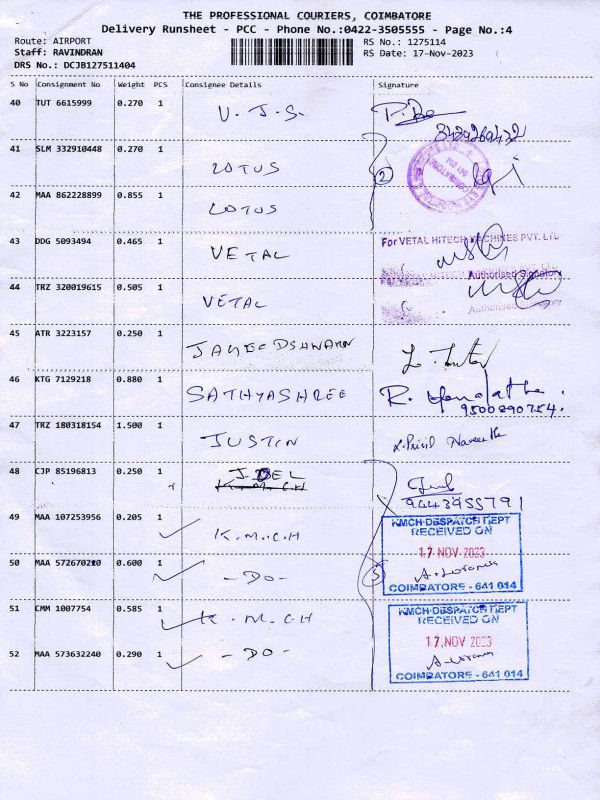 THE PROFESSIONAL COURIERS, COIMBATORE
Delivery Runsheet - PCC - Phone No.:0422-3505555 - Page No.:4
Route: AIRPORT RS No.: 1275114
Staff: RAVINDRAN RS Date: 17-Nov-2023
DRS No.: DCJB127511404
S No Consignment No Weight PCS Consignee Details Signature
40 TUT 6615999 0.270 1 V.J.S.
41 SLM 332910448 0.270 1 LOTUS
2
42 MAA 862228899 0.855 1 LOTUS
43 DDG 5093494 0.465 1 VETAL For VETAL HITECH MACHINES PVT. LTD
Authorised Signatory
44 TRZ 320019615 0.505 1 VETAL
Authorised Signatory
45 ATR 3223157 0.250 1
46 KTG 7129218 0.880 1 SATHYASHREE
9500890754.
47 TRZ 180318154 1.500 1 JUSTIN
48 CJP 85196813 0.250 1 JOEL
K.M.C.H
9443955791
49 MAA 107253956 0.205 1 K.M.C.H KMCH-DESPATCH DEPT
RECEIVED ON
17 NOV 2023
50 MAA 572670210 0.600 1 -DO-
5
COIMBATORE - 641 014
51 CMM 1007754 0.585 1 K.M.C.H KMCH-DESPATCH DEPT
RECEIVED ON
17 NOV 2023
52 MAA 573632240 0.290 1 -DO-
COIMBATORE - 641 014